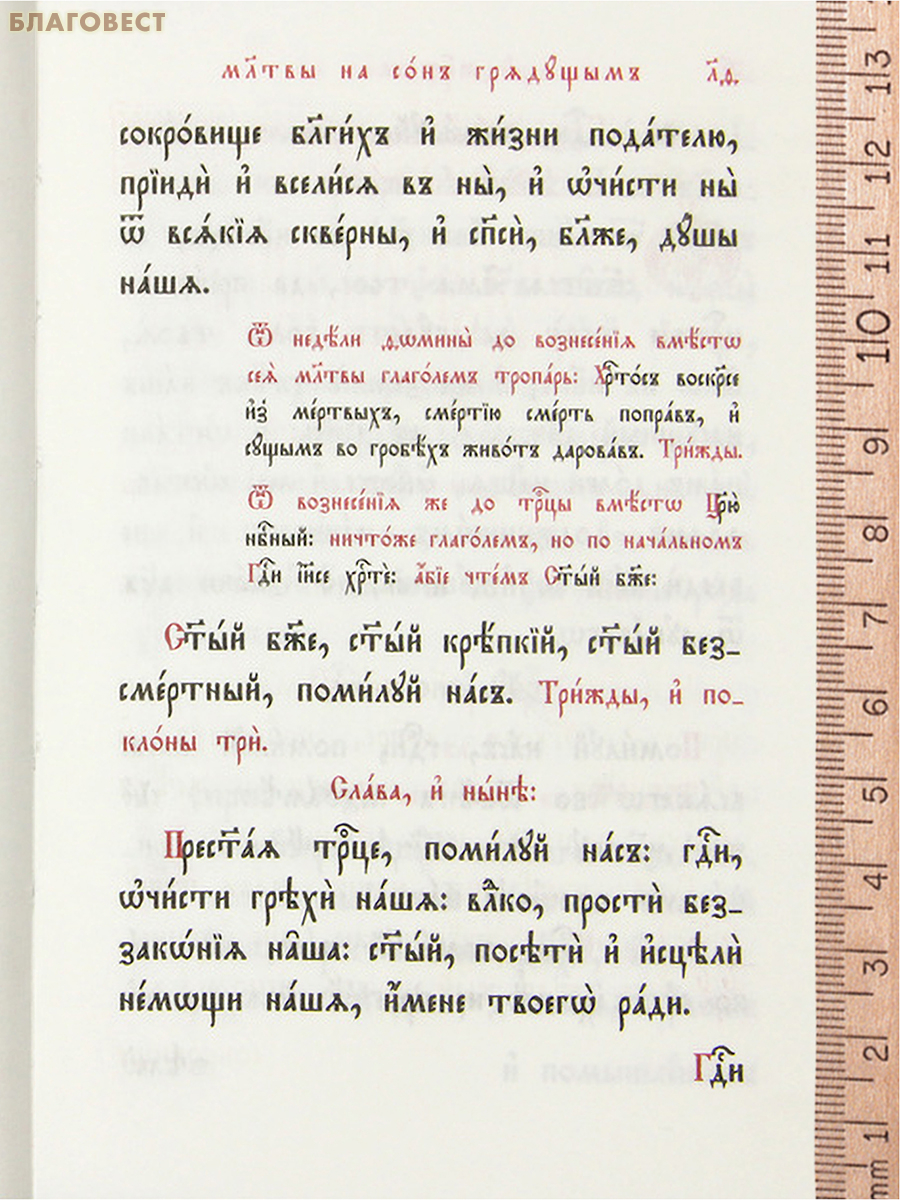 БЛАГОВЕСТ
мл҃твы на со́нъ грѧдꙋ́щымъ л҃д.
сокро́вище бл҃ги́хъ и҆ жи́зни пода́телю,
прїидѝ и҆ всели́сѧ въ ны̀, и҆ ѡ҆чи́сти ны̀
ѿ всѧ́кїѧ скве́рны, и҆ сп҃сѝ, бл҃же, дꙋ́шы
на́шѧ.
Ѿ недѣ́ли ѳѡмины̀ до вознесе́нїѧ вмѣ́стѡ
сеѧ̀ мл҃твы глаго́лемъ тропа́рь: Хрⷭ҇то́съ воскр҃се
и҆з̾ ме́ртвыхъ, сме́ртїю сме́рть попра́въ, и҆
сꙋ́щымъ во гробѣ́хъ живо́тъ дарова́въ. Три́жды.
Ѿ вознесе́нїѧ же до трⷪ҇цы вмѣ́стѡ Цр҃ю̀
нбⷭ҇ный: ничто́же глаго́лемъ, но по нача́льномъ
Гдⷭ҇и і҆и҃се хрⷭ҇тѐ: а҆́бїе чте́мъ Ст҃ы́й бж҃е:
Ст҃ы́й бж҃е, ст҃ы́й крѣ́пкїй, ст҃ы́й без-
сме́ртный, поми́лꙋй на́съ. Три́жды, и҆ по-
кло́ны трѝ.
Сла́ва, и҆ ны́нѣ:
Прест҃а́ѧ трⷪ҇це, поми́лꙋй на́съ: гдⷭ҇и,
ѡ҆чи́сти грѣхѝ на́шѧ: влⷣко, простѝ без-
зако́нїѧ на̑ша: ст҃ы́й, посѣтѝ и҆ и҆сцѣлѝ
не́мѡщи на́шѧ, и҆́мене твоегѡ̀ ра́ди.
Гдⷭ҇и
13
12
11
10
9
8
7
6
5
4
3
2
1
mm